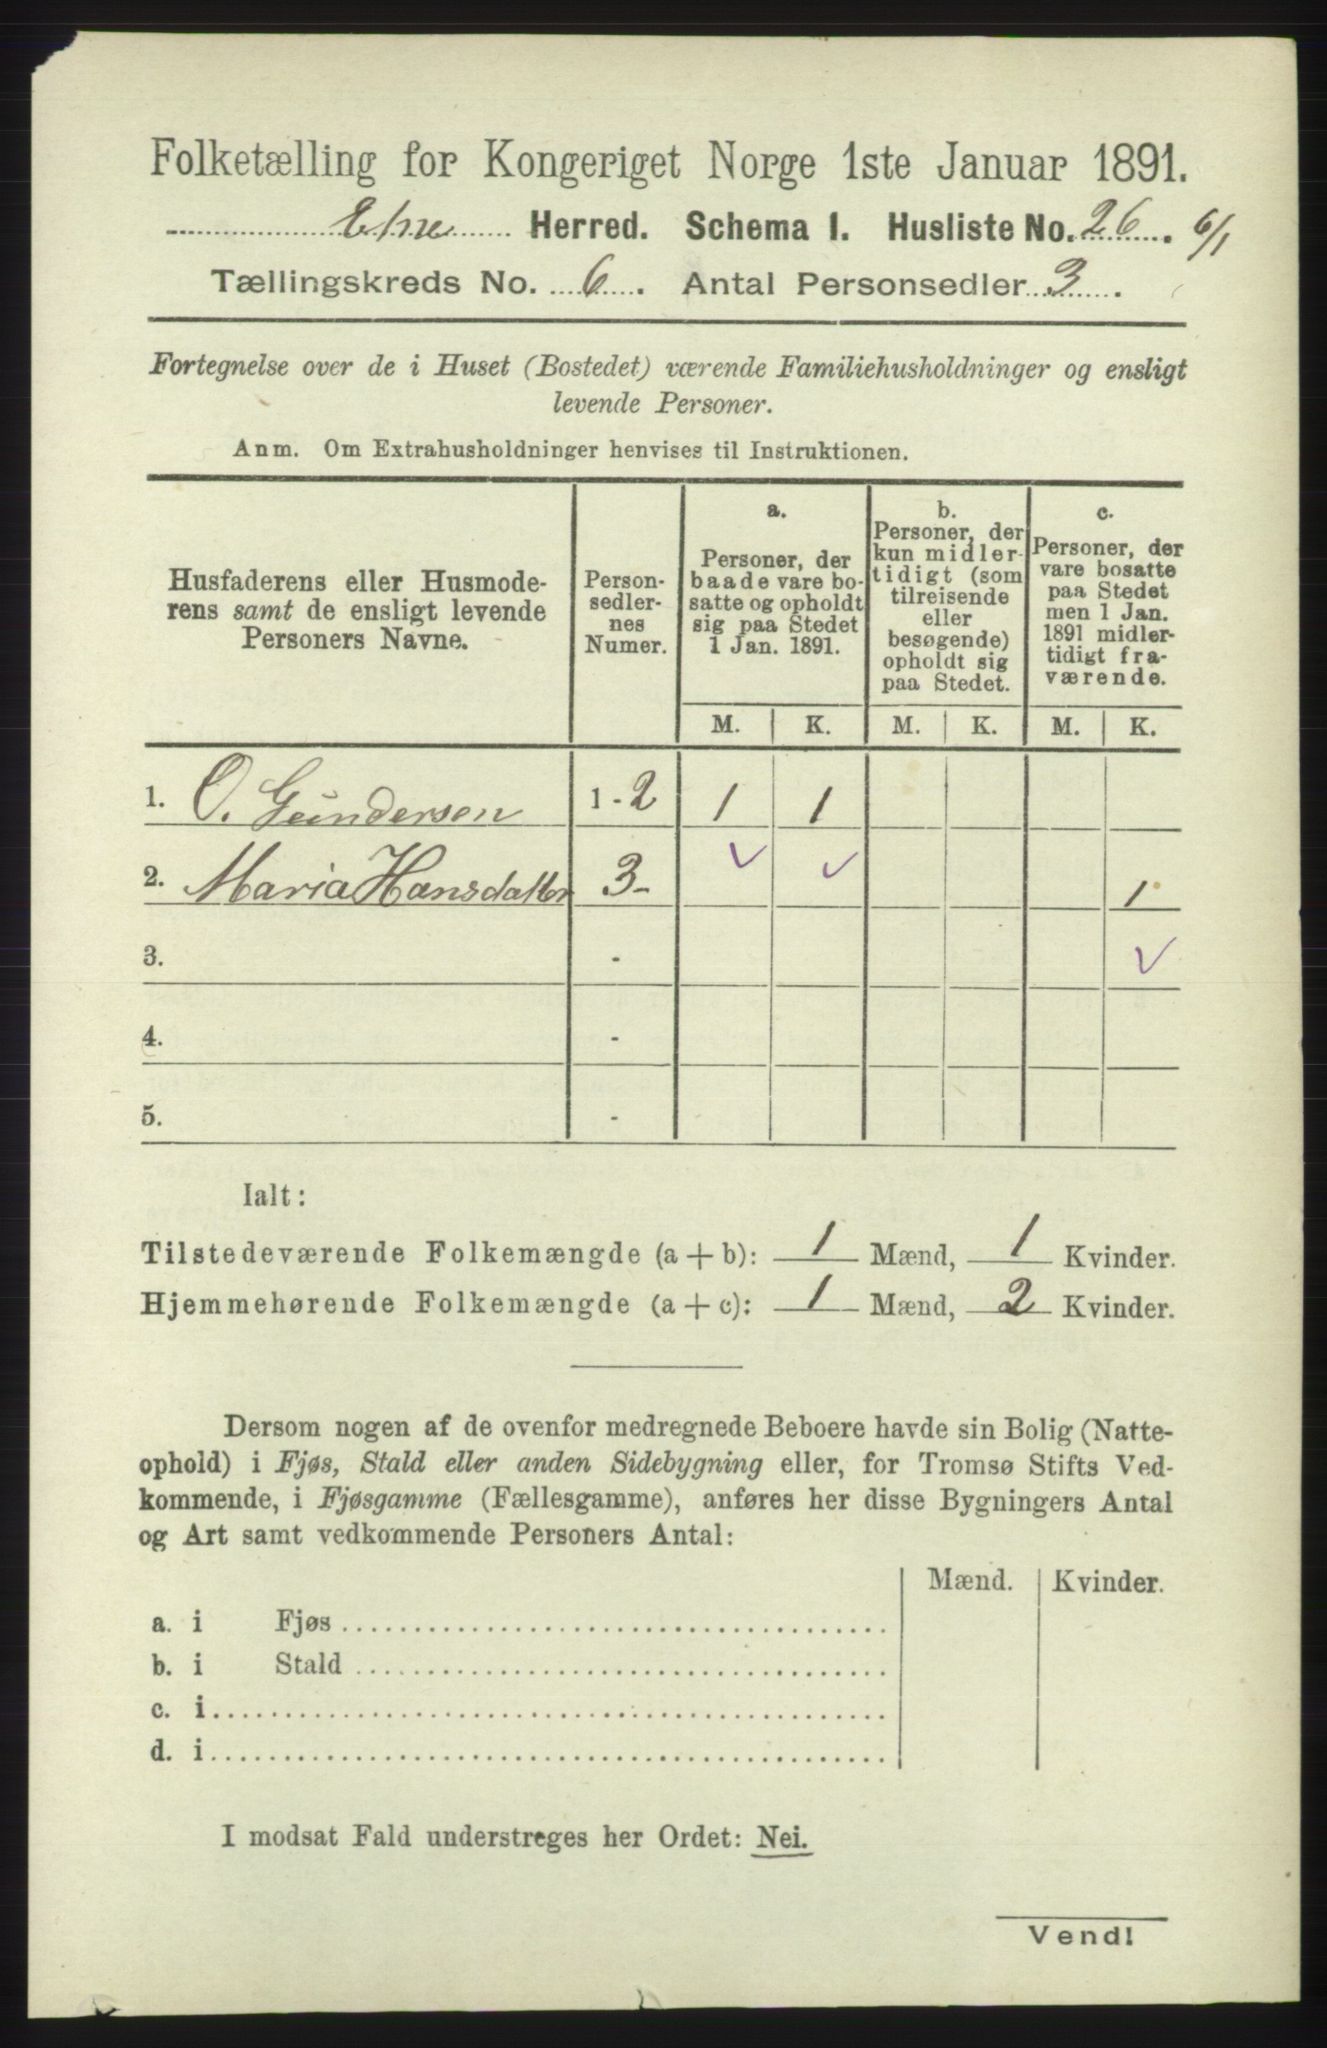 Folketælling for Kongeriget Norge 1ste Januar 1891.
Etne Herred. Schema I. Husliste No. 26. 6/1
Tællingskreds No. 6. Antal Personsedler 3.
Fortegnelse over de i Huset (Bostedet) værende Familiehusholdninger og ensligt
levende Personer.
Anm. Om Extrahusholdninger henvises til Instruktionen.
Husfaderens eller Husmode-
rens samt de ensligt levende
Personers Navne.
Person-
sedler-
nes
Numer.
a.
Personer, der
baade vare bo-
satte og opholdt
sig paa Stedet
1 Jan. 1891.
b.
Personer, der
kun midler-
tidigt (som
tilreisende
eller
besøgende)
opholdt sig
paa Stedet.
c.
Personer, der
vare bosatte
paa Stedet
men 1 Jan.
1891 midler-
tidigt fra-
værende.
M. K. M. K. M. K.
1. O. Gundersen 1 - 2 1 1
2. Maria Hansdatter 3 - 1
3. -
4. -
5. -
Ialt:
Tilstedeværende Folkemængde (a + b): 1 Mænd, 1 Kvinder.
Hjemmehørende Folkemængde (a + c): 1 Mænd, 2 Kvinder.
Dersom nogen af de ovenfor medregnede Beboere havde sin Bolig (Natte-
ophold) i Fjøs, Stald eller anden Sidebygning eller, for Tromsø Stifts Ved-
kommende, i Fjøsgamme (Fællesgamme), anføres her disse Bygningers Antal
og Art samt vedkommende Personers Antal:
Mænd. Kvinder.
a. i Fjøs
b. i Stald
c. i
d. i
I modsat Fald understreges her Ordet: Nei.
Vend!